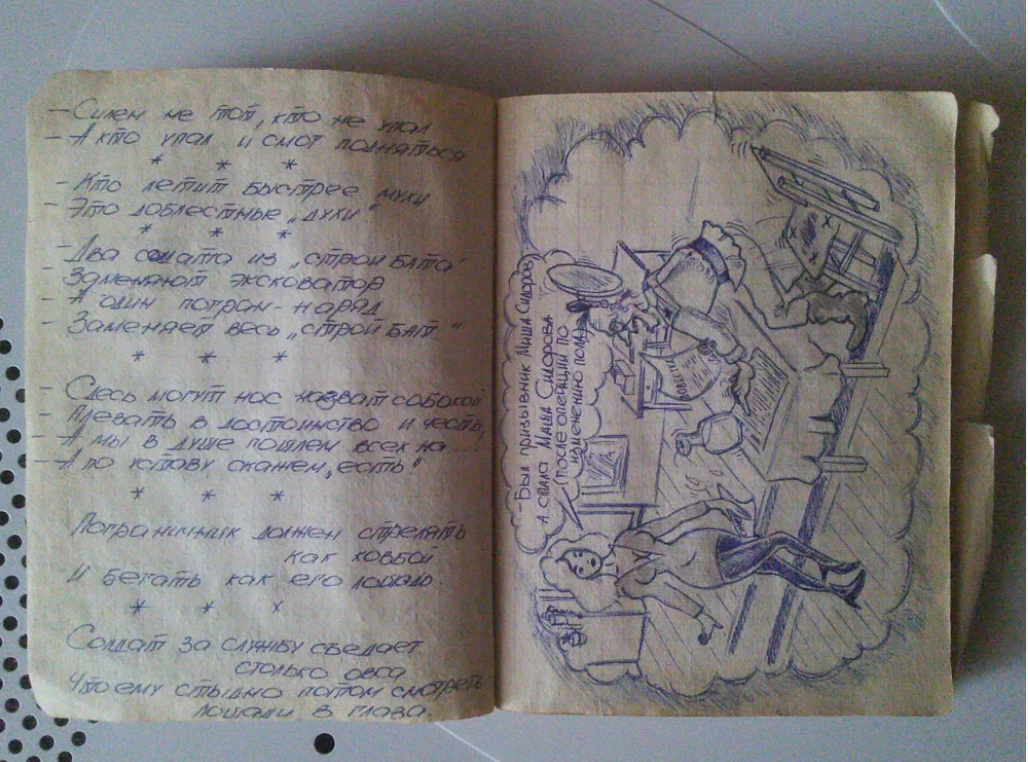 – Силен не тот, кто не упал
– А кто упал и смог подняться
* * *
– Кто летит быстрее мухи
– Это доблестные „духи“
* * *
– Два солдата из „строй бата“
– Заменяют эксковатор
– А один погран-наряд
– Заменяет весь „строй бат“
* * *
– Сдесь могут нас назват собакой
– Плевать в достоинство и честь,
– А мы в душе пошлем всех на...!
– А по уставу скажем „есть“
* * *
Пограничник должен стрелять
как ковбой
И бегать как его лошадь.
* * *
Солдат за службу съедает
столько овса
Что ему стыдно потом смотреть
лошади в глаза.
– Был призывник Миша Сидоров
А стала Маша Сидорова
(после операции по
изменению пола)
Повестка